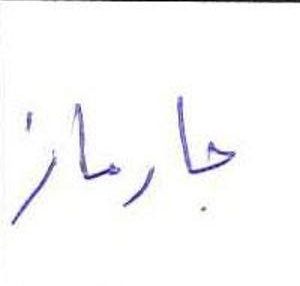 جارماز